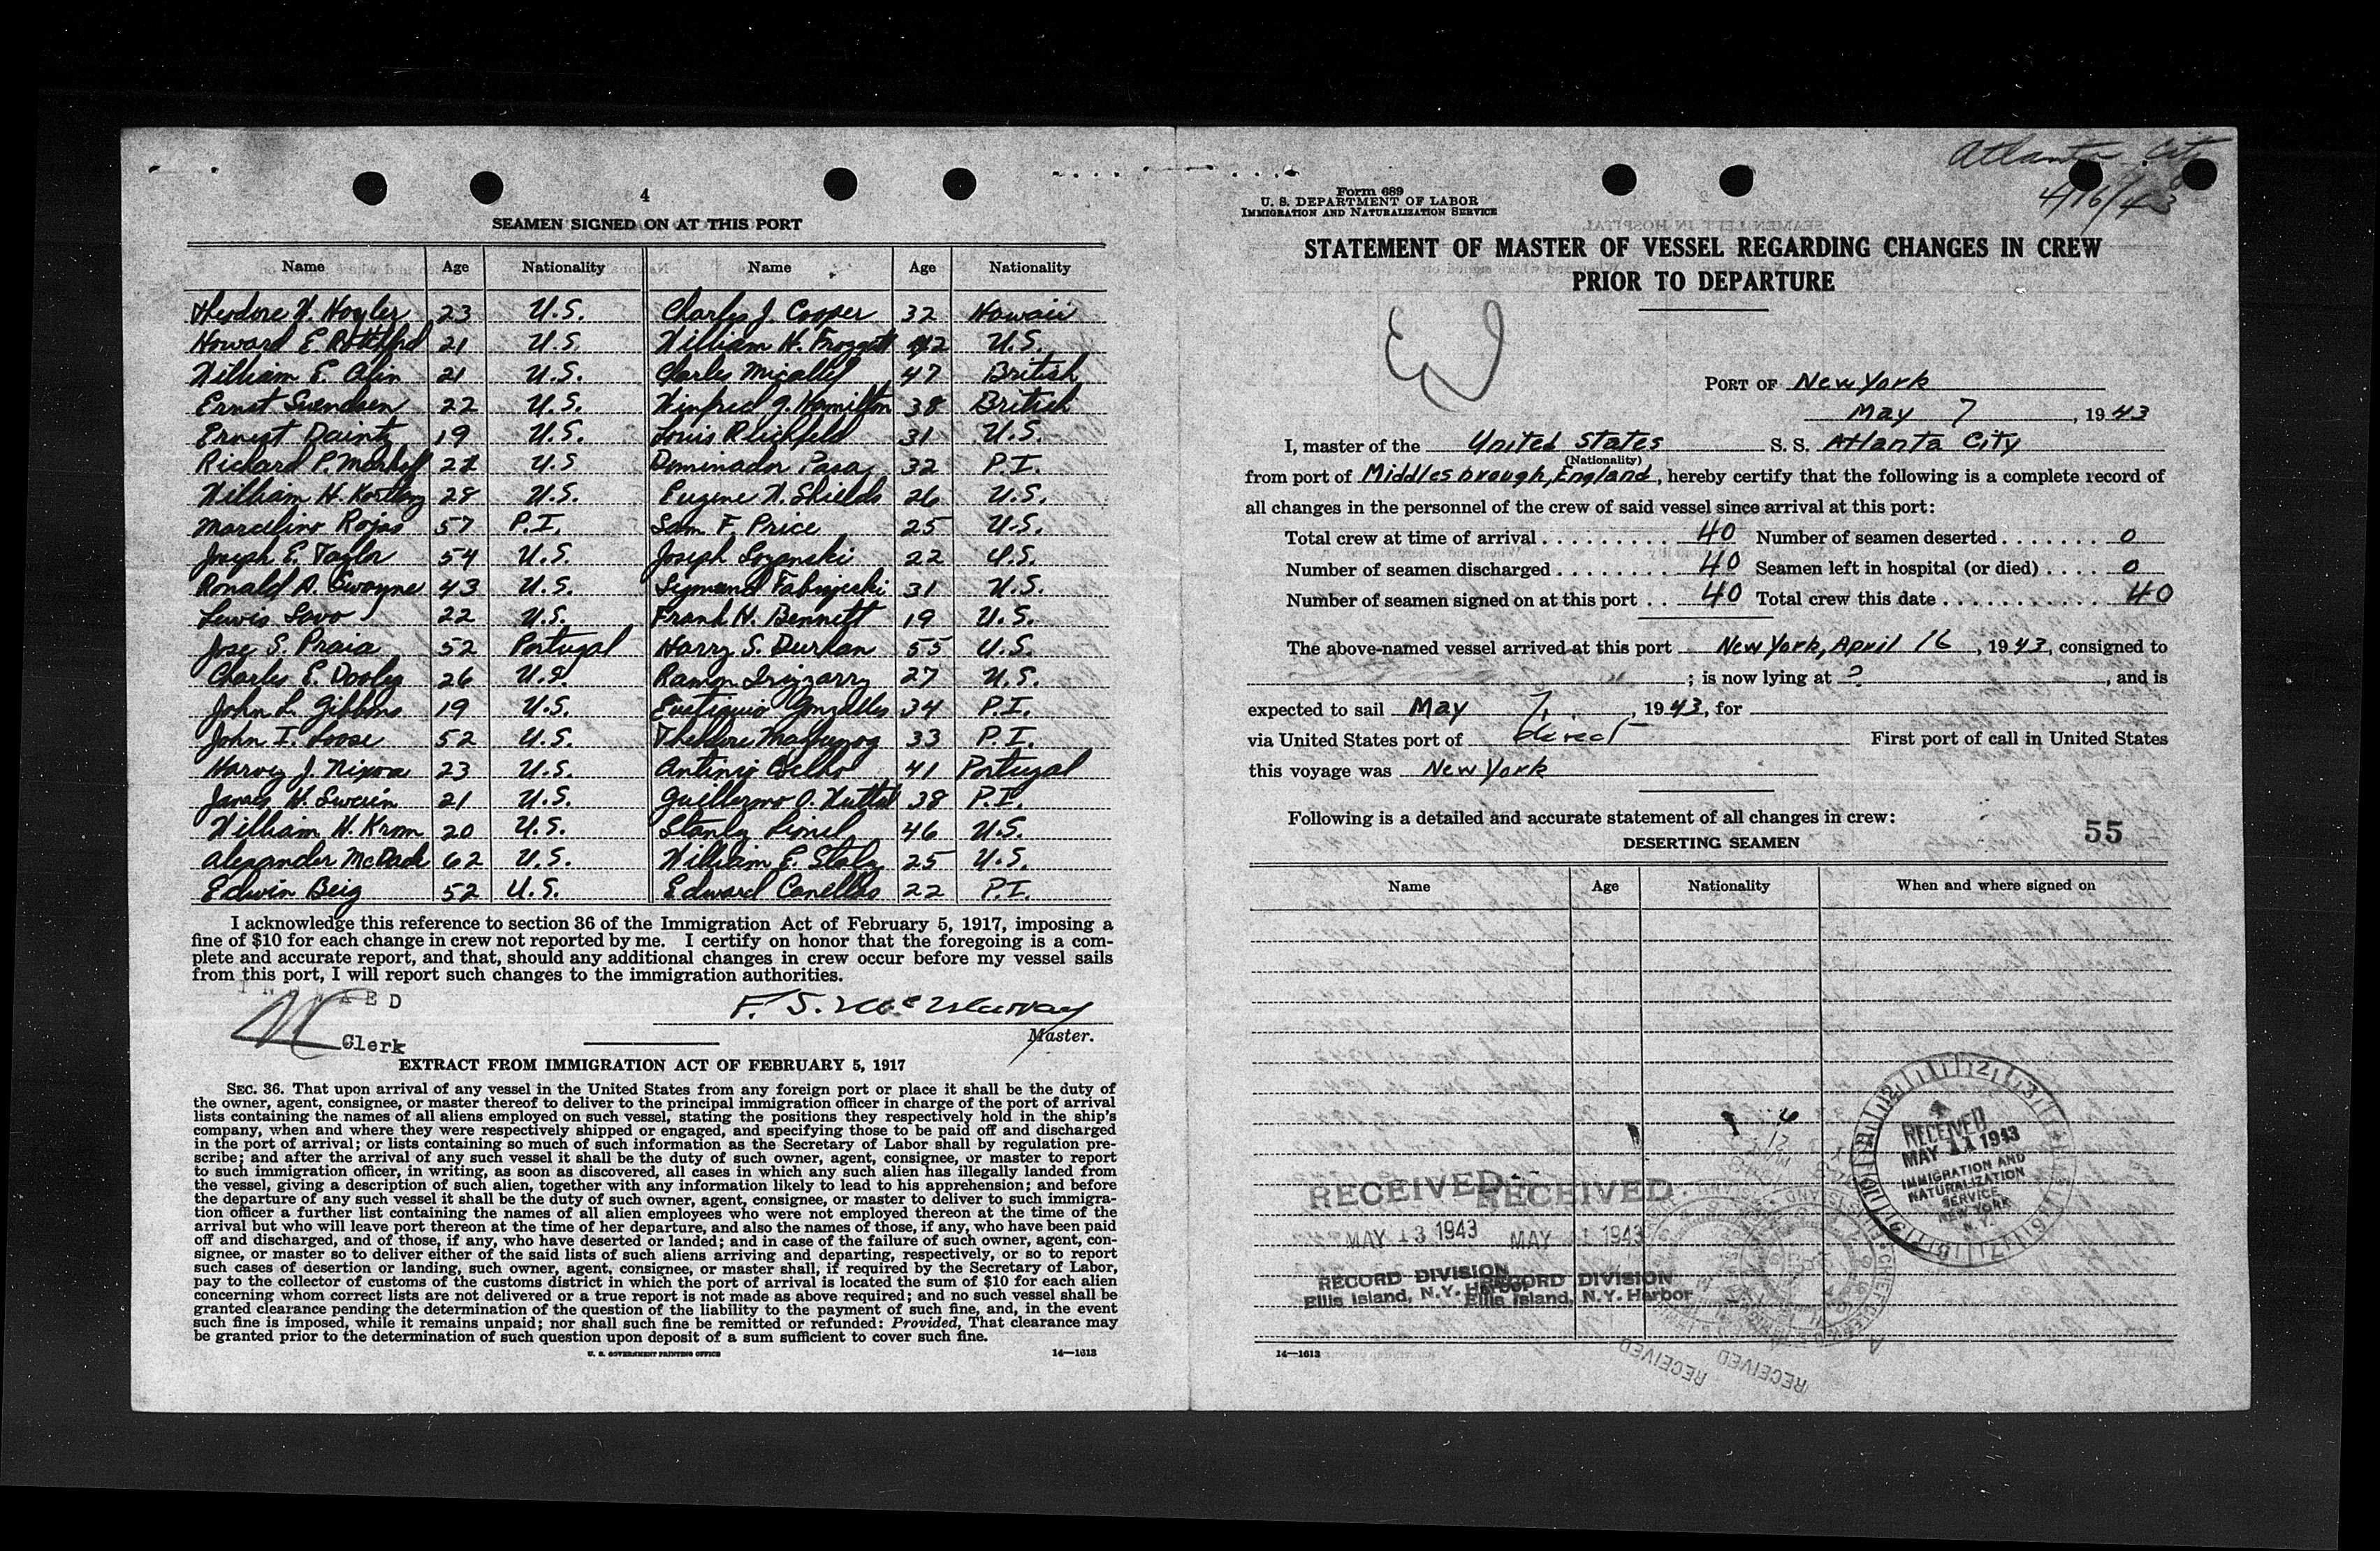 4
SEAMEN SIGNED ON AT THIS PORT
Name Age Nationality Name Age Nationality
Theodore W. Hoyler 23 U.S. Charles J. Cooper 32 Hawaii
Howard E. 21 U.S. William H. Froggatt 42 U.S.
William E. 21 U.S. Charles Micallef 47 British
Ernst Svendsen 22 U.S. Winfred J. Hamilton 38 British
Ernest Daintz 19 U.S. Louis Reichfeld 31 U.S.
Richard P. U.S Dominador Pasa 32 P.I.
William H. 28 U.S. Eugene W. Shields 26 U.S.
Marcelino Rojas 57 P.I. Sam F. Price 25 U.S.
Joseph E. Taylor 54 U.S. Joseph Lozenski 22 U.S.
Ronald A. Swayne 43 U.S. 31 U.S.
Lewis Savo 22 U.S. Frank H. Bennett 19 U.S.
Jose S. Praia 52 Portugal Harry S. Durhan 55 U.S.
Charles E. Dooley 26 U.S. Ramon Irizzarry 27 U.S.
John L. Gibbons 19 U.S. Eutiquio Gonzalles 34 P.I.
John I. Loose 52 U.S. Theodore 33 P.I.
Harvey J. Nixon 23 U.S. Antinio Coelho 41 Portugal
James W. Swain 21 U.S. Guillermo O. 38 P.I.
William H. Krom 20 U.S. Stanly Lionel 46 U.S.
Alexander McDade 62 U.S. William E. Staly 25 U.S.
Edwin Beig 52 U.S. Edward Canellas 22 P.I.
I acknowledge this reference to section 36 of the Immigration Act of February 5, 1917, imposing a
fine of $10 for each change in crew not reported by me. I certify on honor that the foregoing is a com-
plete and accurate report, and that, should any additional changes in crew occur before my vessel sails
from this port, I will report such changes to the immigration authorities.
Clerk
F. S. McMurray
Master.
EXTRACT FROM IMMIGRATION ACT OF FEBRUARY 5, 1917
SEC. 36. That upon arrival of any vessel in the United States from any foreign port or place it shall be the duty of
the owner, agent, consignee, or master thereof to deliver to the principal immigration officer in charge of the port of arrival
lists containing the names of all aliens employed on such vessel, stating the positions they respectively hold in the ship's
company, when and where they were respectively shipped or engaged, and specifying those to be paid off and discharged
in the port of arrival; or lists containing so much of such information as the Secretary of Labor shall by regulation pre-
scribe; and after the arrival of any such vessel it shall be the duty of such owner, agent, consignee, or master to report
to such immigration officer, in writing, as soon as discovered, all cases in which any such alien has illegally landed from
the vessel, giving a description of such alien, together with any information likely to lead to his apprehension; and before
the departure of any such vessel it shall be the duty of such owner, agent, consignee, or master to deliver to such immigra-
tion officer a further list containing the names of all alien employees who were not employed thereon at the time of the
arrival but who will leave port thereon at the time of her departure, and also the names of those, if any, who have been paid
off and discharged, and of those, if any, who have deserted or landed; and in case of the failure of such owner, agent, con-
signee, or master so to deliver either of the said lists of such aliens arriving and departing, respectively, or so to report
such cases of desertion or landing, such owner, agent, consignee, or master shall, if required by the Secretary of Labor,
pay to the collector of customs of the customs district in which the port of arrival is located the sum of $10 for each alien
concerning whom correct lists are not delivered or a true report is not made as above required; and no such vessel shall be
granted clearance pending the determination of the question of the liability to the payment of such fine, and, in the event
such fine is imposed, while it remains unpaid; nor shall such fine be remitted or refunded: Provided, That clearance may
be granted prior to the determination of such question upon deposit of a sum sufficient to cover such fine.
U. S. GOVERNMENT PRINTING OFFICE 14—1613
Atlanta City
4/16/43
Form 689
U. S. DEPARTMENT OF LABOR
IMMIGRATION AND NATURALIZATION SERVICE
STATEMENT OF MASTER OF VESSEL REGARDING CHANGES IN CREW
PRIOR TO DEPARTURE
PORT OF New York
May 7, 1943
I, master of the United States S. S. Atlanta City
(Nationality)
from port of Middlesbrough, England, hereby certify that the following is a complete record of
all changes in the personnel of the crew of said vessel since arrival at this port:
Total crew at time of arrival 40 Number of seamen deserted 0
Number of seamen discharged 40 Seamen left in hospital (or died) 0
Number of seamen signed on at this port 40 Total crew this date 40
The above-named vessel arrived at this port New York, April 16, 1943, consigned to
; is now lying at ?, and is
expected to sail May 7, 1943, for
via United States port of direct First port of call in United States
this voyage was New York
Following is a detailed and accurate statement of all changes in crew:
55
DESERTING SEAMEN
Name Age Nationality When and where signed on
RECEIVED
MAY 11 1943
IMMIGRATION AND
NATURALIZATION
SERVICE
NEW YORK
N. Y.
RECEIVED RECEIVED
MAY 13 1943 MAY 1943
RECORD DIVISION RECORD DIVISION
Ellis Island, N.Y. Harbor Ellis Island, N.Y. Harbor
14—1613
RECEIVED RECEIVED